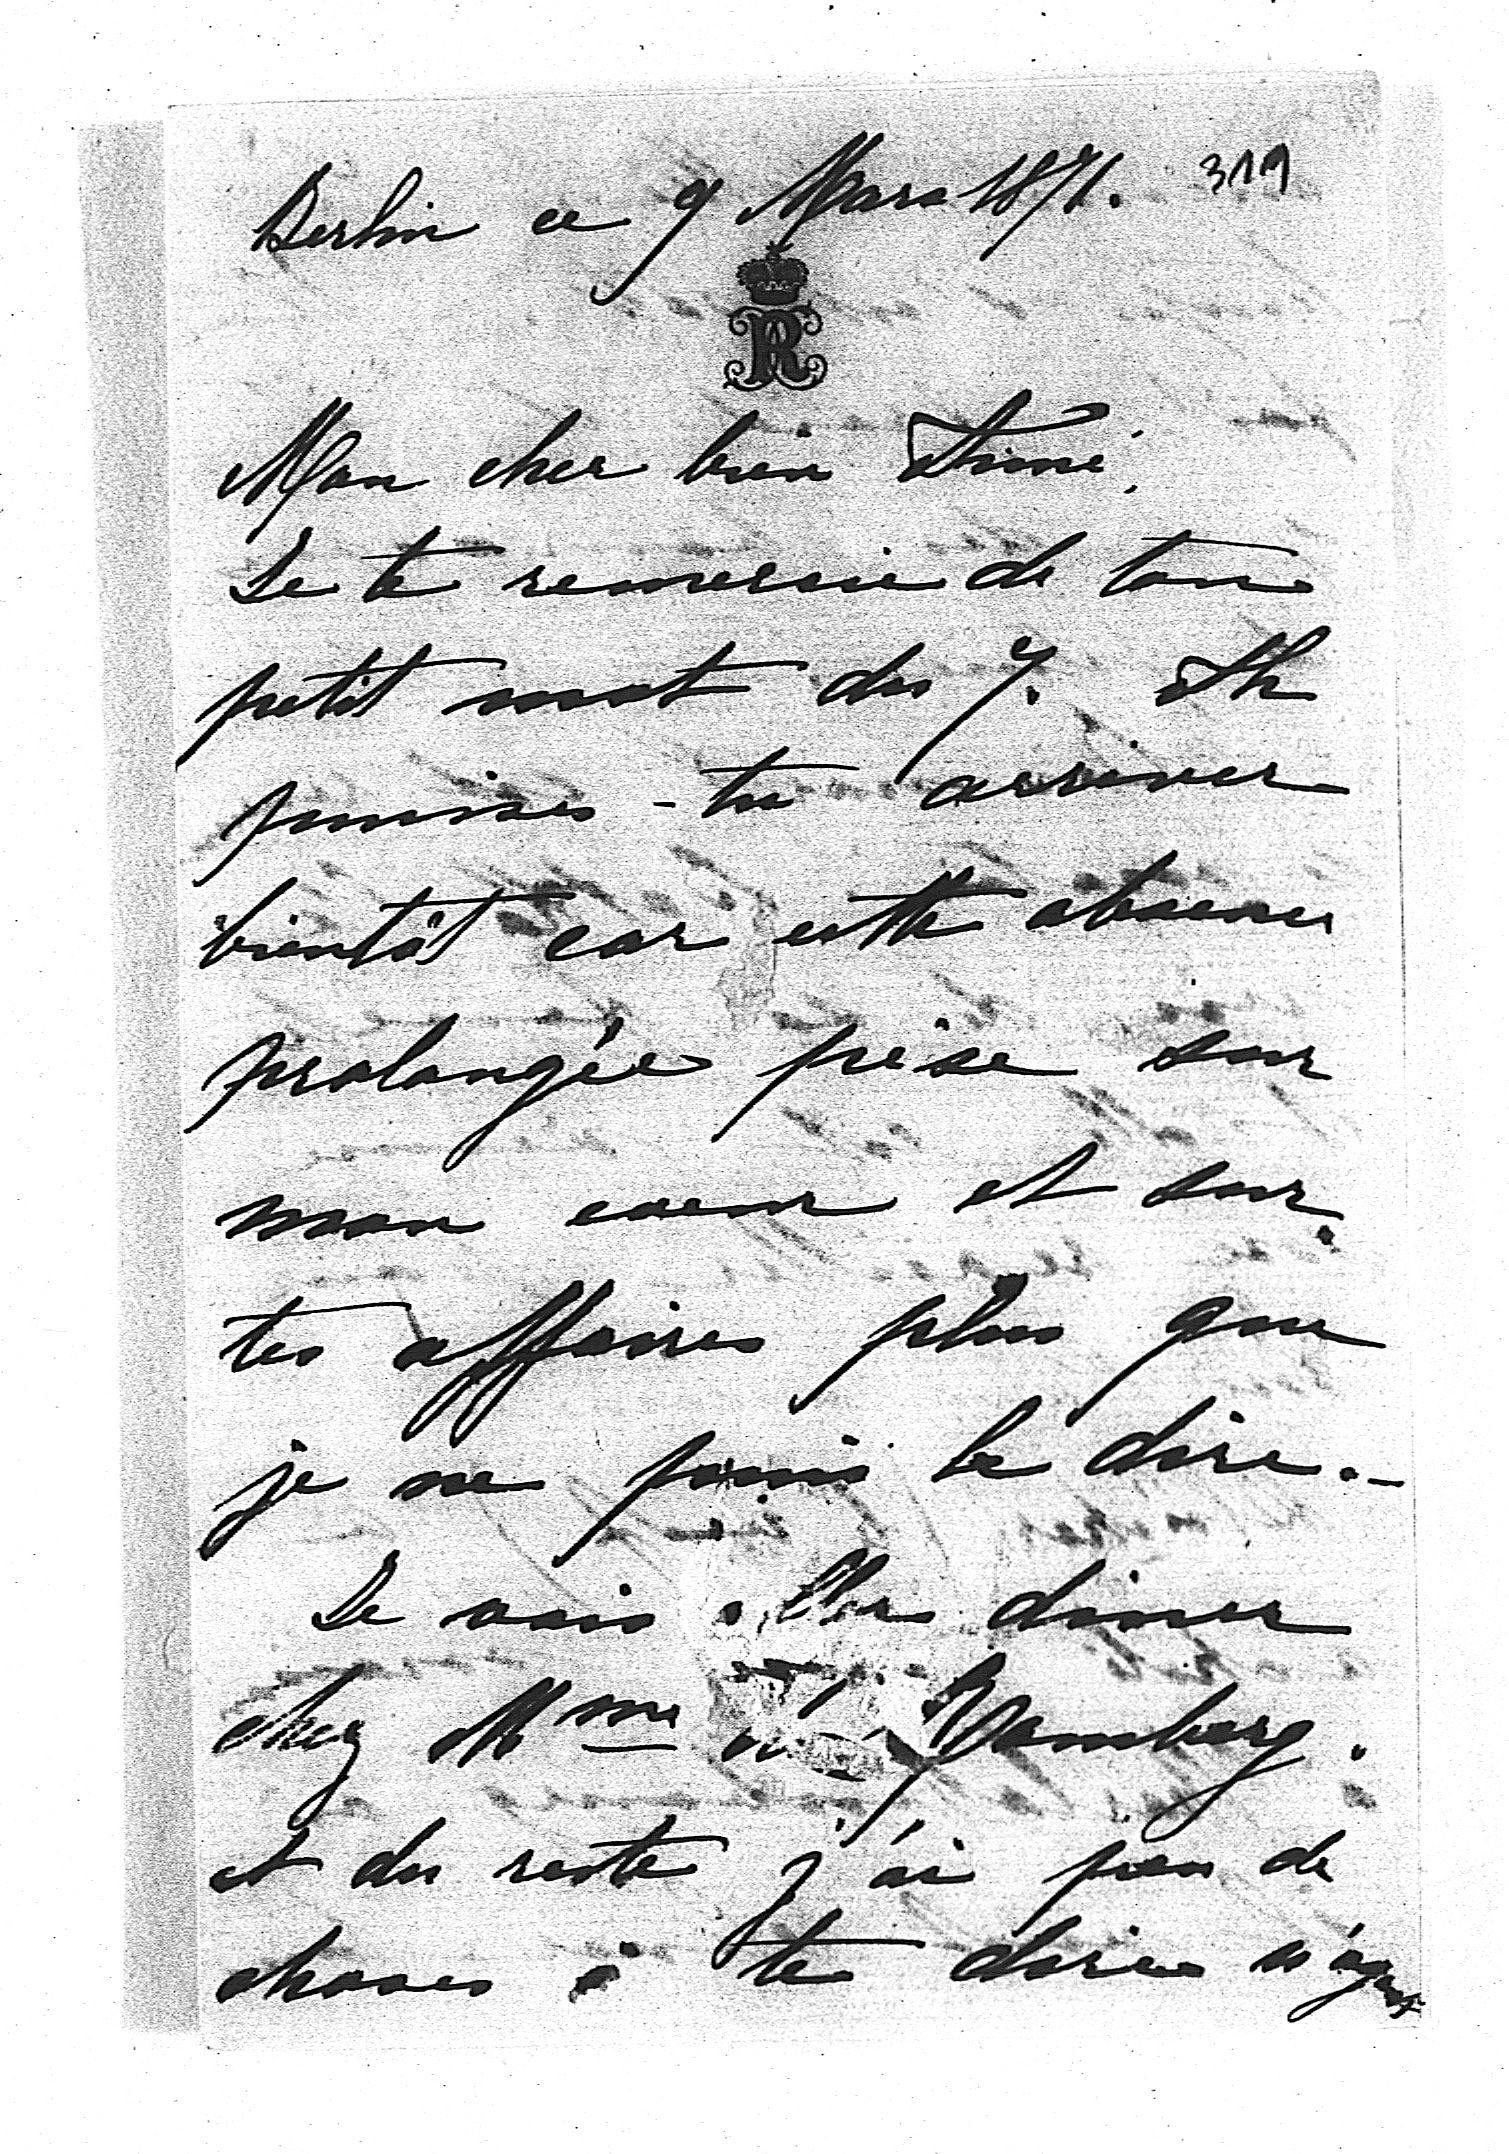 319
Berlin ce 9 Mars 1871.
R
Mon cher bien Aimé.
Je te remercie de ton
petit mot du 7. Ah
puisses-tu arriver
bientôt car cette absence
prolongée pèse sur
mon coeur et sur
tes affaires plus que
je ne puis le dire.-
Je vais aller diner
chez Mme Bamberg.
et du reste j'ai peu de
choses à te dire n'ayant